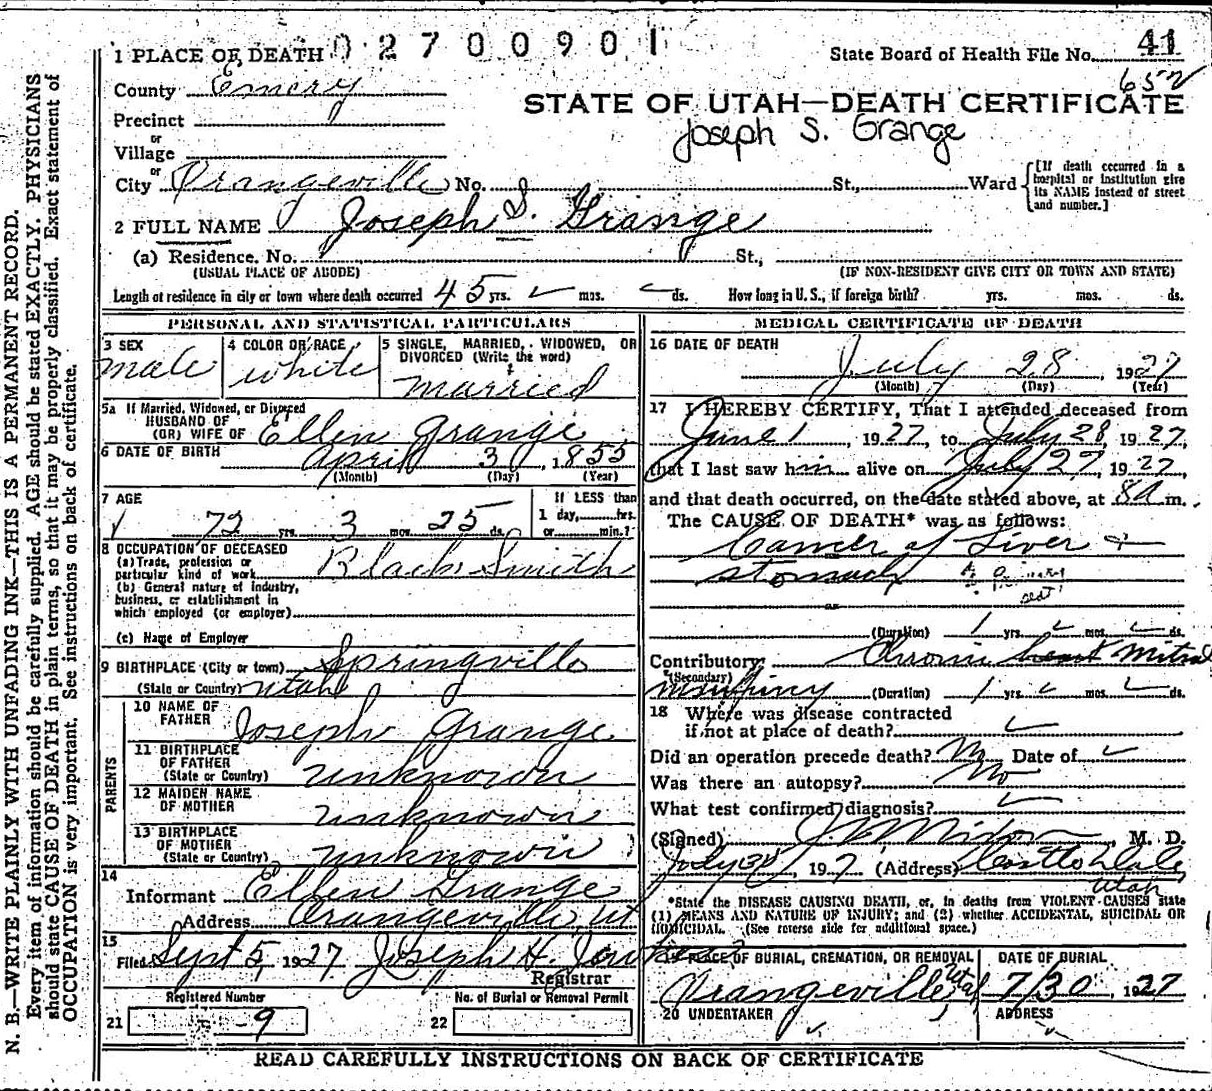 1 PLACE OF DEATH 02700901 State Board of Health File No. 41
652
County Emery
STATE OF UTAH—DEATH CERTIFICATE
Precinct
Joseph S. Grange
or
Village
or
City Orangeville No. St., Ward [If death occurred in a hospital or institution give its NAME instead of street and number.]
2 FULL NAME Joseph S. Grange
(a) Residence. No. St.,
(USUAL PLACE OF ABODE) (IF NON-RESIDENT GIVE CITY OR TOWN AND STATE)
Length of residence in city or town where death occurred 45 yrs. mos. ds. How long in U. S., if foreign birth? yrs. mos. ds.
PERSONAL AND STATISTICAL PARTICULARS
3 SEX
male
4 COLOR OR RACE
white
5 SINGLE, MARRIED, WIDOWED, OR
DIVORCED (Write the word)
married
5a If Married, Widowed, or Divorced
HUSBAND OF
(OR) WIFE OF Ellen Grange
6 DATE OF BIRTH April 3, 1855
(Month) (Day) (Year)
7 AGE
72 yrs. 3 mos. 25 ds.
If LESS than
1 day, hrs.
or min.?
8 OCCUPATION OF DECEASED
(a) Trade, profession or
particular kind of work Black Smith
(b) General nature of industry,
business, or establishment in
which employed (or employer)
(c) Name of Employer
9 BIRTHPLACE (City or town) Springville
(State or Country) Utah
PARENTS
10 NAME OF
FATHER Joseph Grange
11 BIRTHPLACE
OF FATHER
(State or Country) unknown
12 MAIDEN NAME
OF MOTHER unknown
13 BIRTHPLACE
OF MOTHER
(State or Country) unknown
14
Informant Ellen Grange
Address Orangeville, Ut
15
Filed Sept 5, 1927 Joseph H.
Registrar
Registered Number
21 -9
No. of Burial or Removal Permit
22
MEDICAL CERTIFICATE OF DEATH
16 DATE OF DEATH
July 28, 1927
(Month) (Day) (Year)
17 I HEREBY CERTIFY, That I attended deceased from
June 1, 1927, to July 28, 1927,
that I last saw him alive on July 27, 1927
and that death occurred, on the date stated above, at 8 a m.
The CAUSE OF DEATH* was as follows:
Cancer of Liver +
stomach
(Duration) 1 yrs. mos. ds.
Contributory Chronic heart Mitral
(Secondary)
(Duration) 1 yrs. mos. ds.
18 Where was disease contracted
if not at place of death?
Did an operation precede death? No Date of
Was there an autopsy? No
What test confirmed diagnosis?
(Signed) M. D.
July 192 7 (Address) Castle Dale
Utah
*State the DISEASE CAUSING DEATH, or, in deaths from VIOLENT CAUSES state
(1) MEANS AND NATURE OF INJURY; and (2) whether ACCIDENTAL, SUICIDAL OR
HOMICIDAL. (See reverse side for additional space.)
19 PLACE OF BURIAL, CREMATION, OR REMOVAL
Orangeville, Utah
DATE OF BURIAL
7/30, 1927
20 UNDERTAKER
ADDRESS
READ CAREFULLY INSTRUCTIONS ON BACK OF CERTIFICATE
N. B.—WRITE PLAINLY WITH UNFADING INK—THIS IS A PERMANENT RECORD.
Every item of information should be carefully supplied. AGE should be stated EXACTLY. PHYSICIANS
should state CAUSE OF DEATH in plain terms, so that it may be properly classified. Exact statement of
OCCUPATION is very important. See instructions on back of certificate.